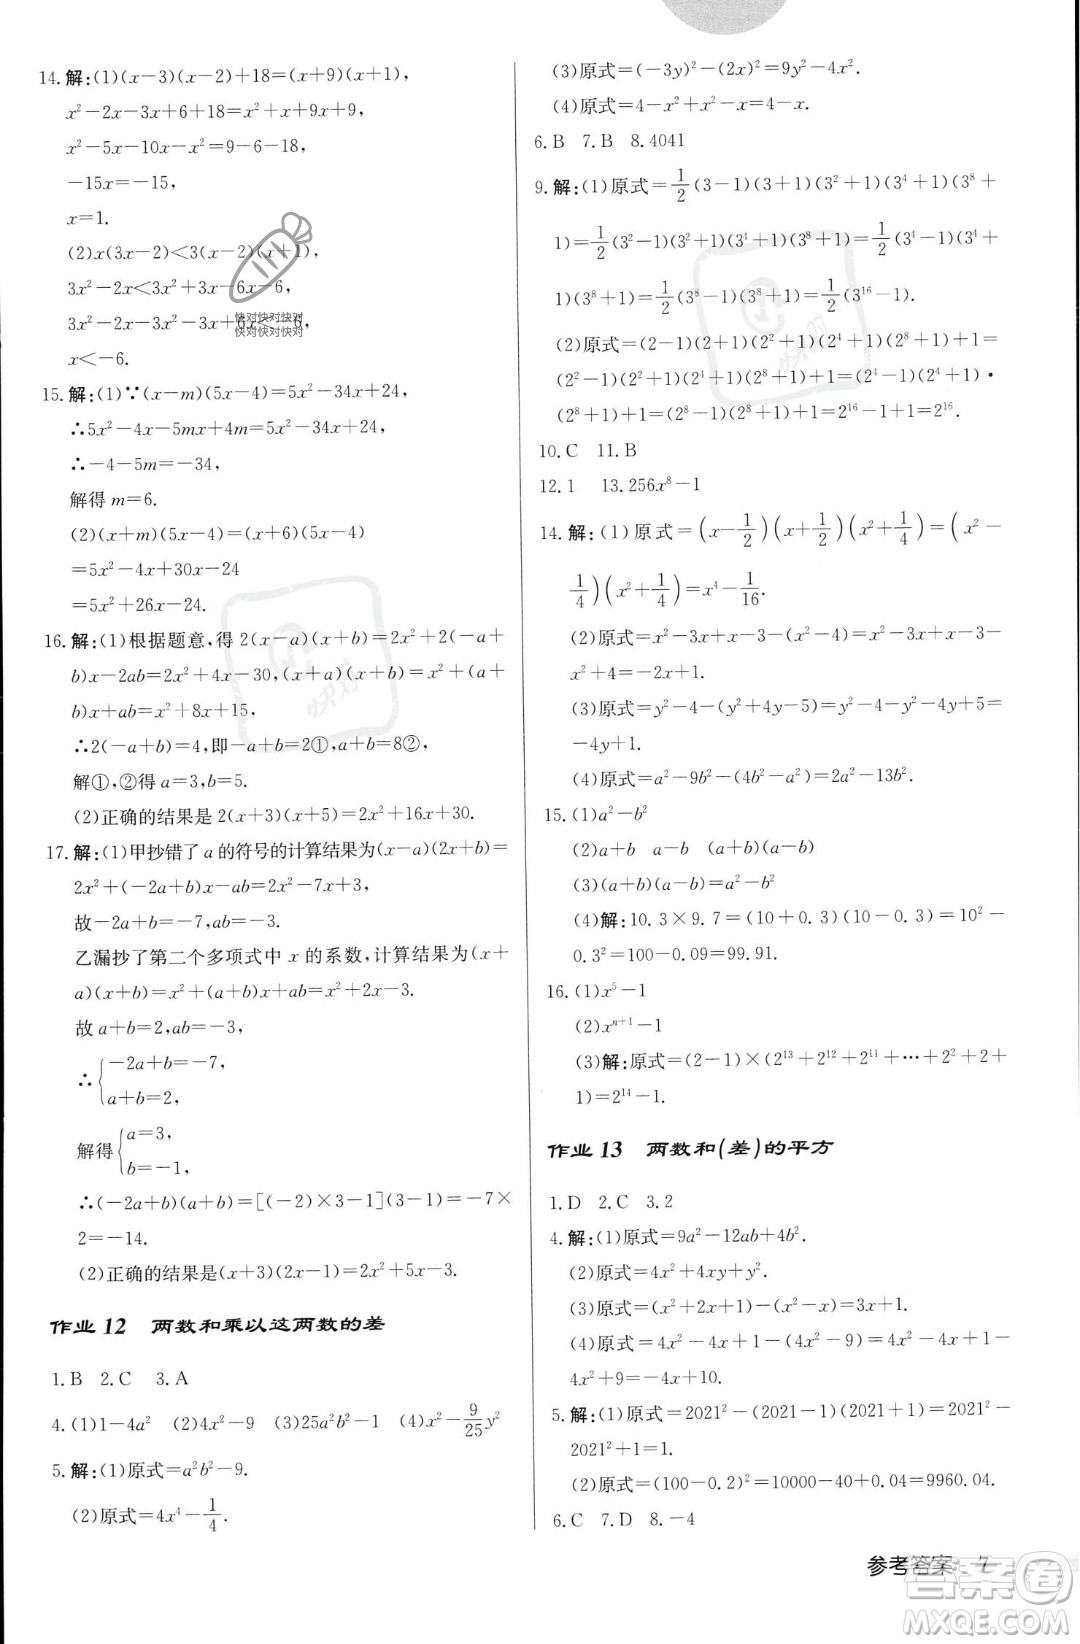 14.解:(1)(x-3)(x-2)+18=(x+9)(x+1),
x²-2x-3x+6+18=x²+x+9x+9,
x²-5x-10x-x²=9-6-18,
-15x=-15,
x=1.
(2)x(3x-2)<3(x-2)(x+1),
3x²-2x<3x²+3x-6x-6,
3x²-2x-3x²-3x+6x<-6,
x<-6.
快对快对快对
快对快对快对
15.解:(1)∵(x-m)(5x-4)=5x²-34x+24,
∴5x²-4x-5mx+4m=5x²-34x+24,
∴-4-5m=-34,
解得 m=6.
(2)(x+m)(5x-4)=(x+6)(5x-4)
=5x²-4x+30x-24
=5x²+26x-24.
16.解:(1)根据题意,得 2(x-a)(x+b)=2x²+2(-a+
b)x-2ab=2x²+4x-30,(x+a)(x+b)=x²+(a+
b)x+ab=x²+8x+15,
∴2(-a+b)=4,即-a+b=2①,a+b=8②,
解①,②得 a=3,b=5.
(2)正确的结果是 2(x+3)(x+5)=2x²+16x+30.
17.解:(1)甲抄错了 a 的符号的计算结果为(x-a)(2x+b)=
2x²+(-2a+b)x-ab=2x²-7x+3,
故-2a+b=-7,-ab=3.
乙漏抄了第二个多项式中 x 的系数,计算结果为(x+
a)(x+b)=x²+(a+b)x+ab=x²+2x-3.
故 a+b=2,ab=-3,
∴{-2a+b=-7,
a+b=2,
解得{a=3,
b=-1,
∴(-2a+b)(a+b)=[(-2)×3-1](3-1)=-7×
2=-14.
(2)正确的结果是(x+3)(2x-1)=2x²+5x-3.
作业 12 两数和乘以这两数的差
1.B 2.C 3.A
4.(1)1-4a² (2)4x²-9 (3)25a²b²-1 (4)x²-9/25y²
5.解:(1)原式=a²b²-9.
(2)原式=4x⁴-1/4.
(3)原式=(-3y)²-(2x)²=9y²-4x².
(4)原式=4-x²+x²-x=4-x.
6.B 7.B 8.4041
9.解:(1)原式=1/2(3-1)(3+1)(3²+1)(3⁴+1)(3⁸+
1)=1/2(3²-1)(3²+1)(3⁴+1)(3⁸+1)=1/2(3⁴-1)(3⁴+
1)(3⁸+1)=1/2(3⁸-1)(3⁸+1)=1/2(3¹⁶-1).
(2)原式=(2-1)(2+1)(2²+1)(2⁴+1)(2⁸+1)+1=
(2²-1)(2²+1)(2⁴+1)(2⁸+1)+1=(2⁴-1)(2⁴+1)·
(2⁸+1)+1=(2⁸-1)(2⁸+1)+1=2¹⁶-1+1=2¹⁶.
10.C 11.B
12.1 13.256x⁸-1
14.解:(1)原式=(x-1/2)(x+1/2)(x²+1/4)=(x²-
1/4)(x²+1/4)=x⁴-1/16.
(2)原式=x²-3x+x-3-(x²-4)=x²-3x+x-3-
x²+4=-2x+1.
(3)原式=y²-4-(y²+4y-5)=y²-4-y²-4y+5=
-4y+1.
(4)原式=a²-9b²-(4b²-a²)=2a²-13b².
15.(1)a²-b²
(2)a+b a-b (a+b)(a-b)
(3)(a+b)(a-b)=a²-b²
(4)解:10.3×9.7=(10+0.3)(10-0.3)=10²-
0.3²=100-0.09=99.91.
16.(1)x⁵-1
(2)xⁿ⁺¹-1
(3)解:原式=(2-1)×(2¹³+2¹²+2¹¹+…+2²+2+
1)=2¹⁴-1.
作业 13 两数和(差)的平方
1.D 2.C 3.2
4.解:(1)原式=9a²-12ab+4b².
(2)原式=4x²+4xy+y².
(3)原式=(x²-2x+1)-(x²-2x)=1.
(4)原式=4x²-4x+1-(4x²-9)=4x²-4x+1-
4x²+9=-4x+10.
5.解:(1)原式=2021²-(2021-1)(2021+1)=2021²-
2021²+1=1.
(2)原式=(100-0.2)²=10000-40+0.04=9960.04.
6.C 7.D 8.-4
参考答案 7
答案圈
MXQE.COM